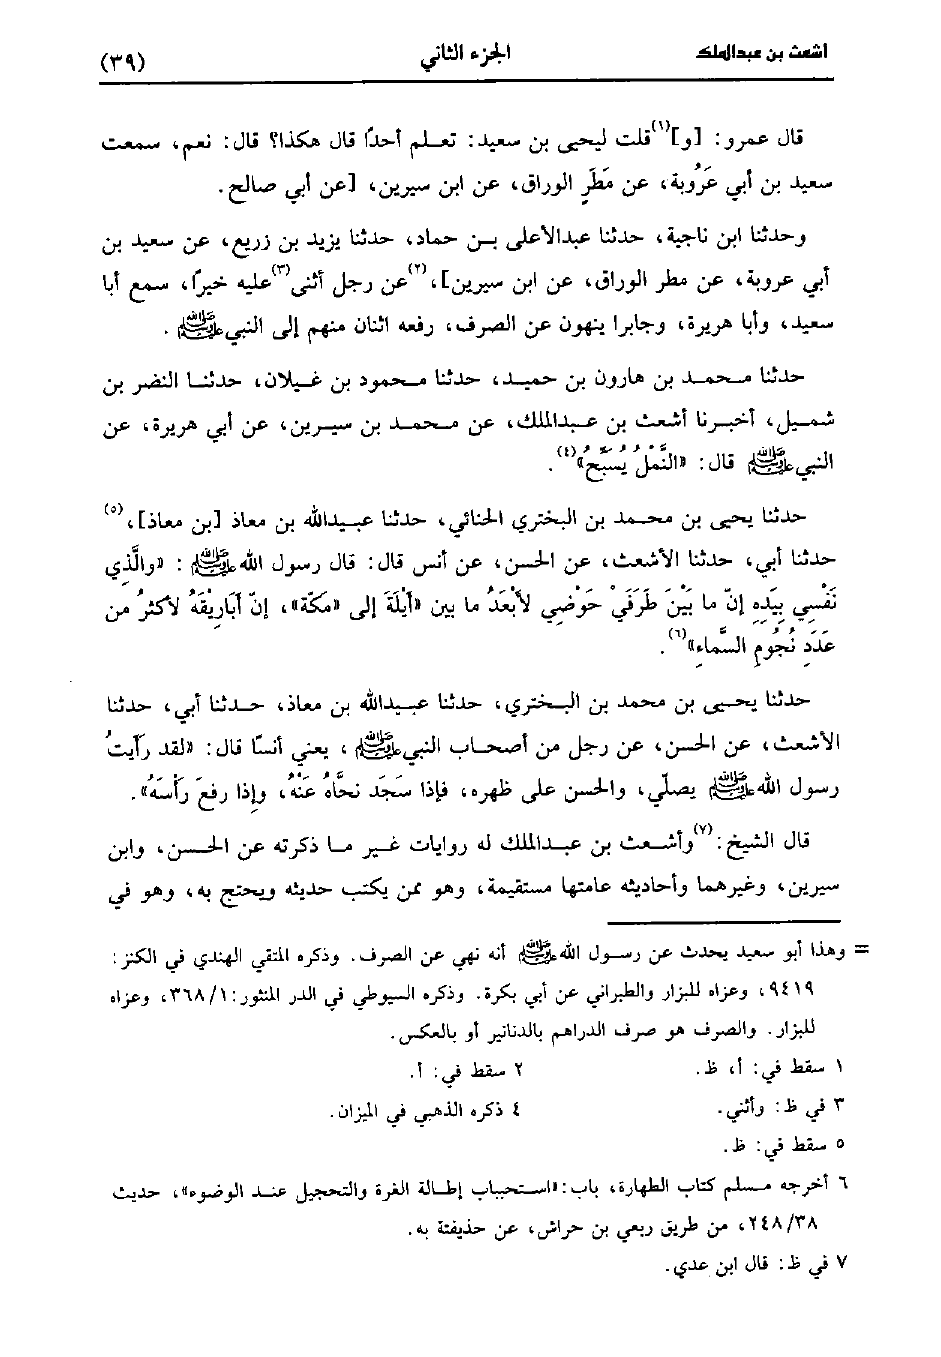 أشعث بن عبدالملك الجزء الثاني (٣٩)
قال عمرو: [و](١)قلت ليحيى بن سعيد: تعلم أحدًا قال هكذا؟ قال: نعم، سمعت
سعيد بن أبي عَرُوبة، عن مَطَرٍ الوراق، عن ابن سيرين، [عن أبي صالح.
وحدثنا ابن ناجية، حدثنا عبدالأعلى بن حماد، حدثنا يزيد بن زريع، عن سعيد بن
أبي عروبة، عن مطر الوراق، عن ابن سيرين]،(٢)عن رجل أثنى(٣)عليه خيرًا، سمع أبا
سعيد، وأبا هريرة، وجابرا ينهون عن الصرف، رفعه اثنان منهم إلى النبي ﷺ .
حدثنا محمد بن هارون بن حميد، حدثنا محمود بن غيلان، حدثنا النضر بن
شميل، أخبرنا أشعث بن عبدالملك، عن محمد بن سيرين، عن أبي هريرة، عن
النبي ﷺ قال: «النَّمْلُ يُسَبِّحُ»(٤).
حدثنا يحيى بن محمد بن البختري الحنائي، حدثنا عبيدالله بن معاذ [بن معاذ]،(٥)
حدثنا أبي، حدثنا الأشعث، عن الحسن، عن أنس قال: قال رسول الله ﷺ : «والَّذِي
نَفْسِي بِيَدِهِ إنّ ما بَيْنَ طَرَفَيْ حَوْضِي لأبْعَدُ ما بين «أيْلَةَ إلى «مكّة»، إنّ أبَارِيقَهُ لأكثرُ من
عَدَدِ نُجُومِ السَّماءِ»(٦).
حدثنا يحيى بن محمد بن البختري، حدثنا عبيدالله بن معاذ، حدثنا أبي، حدثنا
الأشعث، عن الحسن، عن رجل من أصحاب النبي ﷺ ، يعني أنسًا قال: «لقد رأيتُ
رسول الله ﷺ يصلّي، والحسن على ظهره، فإذا سَجَد نحاَّهُ عَنْهُ، وإذا رفعَ رَأْسَهُ».
قال الشيخ:(٧)وأشعث بن عبدالملك له روايات غير ما ذكرته عن الحسن، وابن
سيرين، وغيرهما وأحاديثه عامتها مستقيمة، وهو ممن يكتب حديثه ويحتج به، وهو في
= وهذا أبو سعيد يحدث عن رسول الله ﷺ أنه نهي عن الصرف. وذكره المتقي الهندي في الكنز:
٩٤١٩، وعزاه للبزار والطبراني عن أبي بكرة. وذكره السيوطي في الدر المنثور: ٣٦٨/١، وعزاه
للبزار. والصرف هو صرف الدراهم بالدنانير أو بالعكس.
١ سقط في: أ، ظ. ٢ سقط في: أ.
٣ في ظ: وأثني. ٤ ذكره الذهبي في الميزان.
٥ سقط في: ظ.
٦ أخرجه مسلم كتاب الطهارة، باب: «استحباب إطالة الغرة والتحجيل عند الوضوء»، حديث
٢٤٨/٣٨، من طريق ربعي بن حراش، عن حذيفتة به.
٧ في ظ: قال ابن عدي.